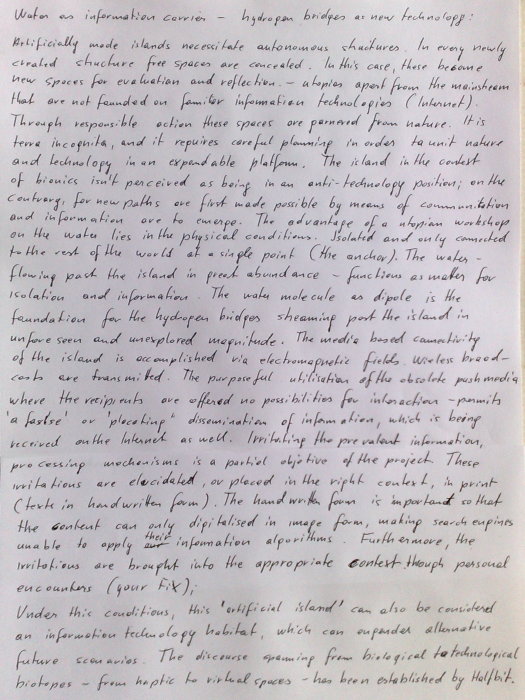 Water as information carrier – hydrogen bridges as new technology:
Artificially made islands necessitate autonomous structures. In every newly
created structure free spaces are concealed. In this case, these become
new spaces for evaluation and reflection – utopias apart from the mainstream
that are not founded on familiar information technologies (Internet).
Through responsible action these spaces are garnered from nature. It is
terra incognita, and it requires careful planning in order to unit nature
and technology in an expandable platform. The island in the context
of bionics isn't perceived as being in an anti-technology position; on the
contrary, for new paths are first made possible by means of communication
and information are to emerge. The advantage of a utopian workshop
on the water lies in the physical conditions. Isolated and only connected
to the rest of the world at a single point (the anchor). The water –
flowing past the island in great abundance – functions as maker for
isolation and information. The water molecule as dipole is the
foundation for the hydrogen bridges streaming past the island in
unforeseen and unexplored magnitude. The media based connectivity
of the island is accomplished via electromagnetic fields. Wireless broad-
casts are transmitted. The purposeful utilisation of the obsolete push media
where the recipients are offered no possibilities for interaction – permits
'a dissemination of information, which is being
received on the Internet as well. Irritating the prevalent information,
processing mechanisms is a partial objetive of the project. These
irritations are elucidated, or placed in the right context, in print
(texts in handwritten form). The handwritten form is important so that
the content can only digitalised in image form, making search engines
unable to apply their information algorithms. Furthermore, the
irritations are brought into the appropriate context though personal
encounters (your Fix);
Under this conditions, this 'artificial island' can also be considered
an information technology habitat, which can engender alternative
future scenarios. The discourse spanning from biological to technological
biotopes – from haptic to virtual spaces – has been established by Halfbit.